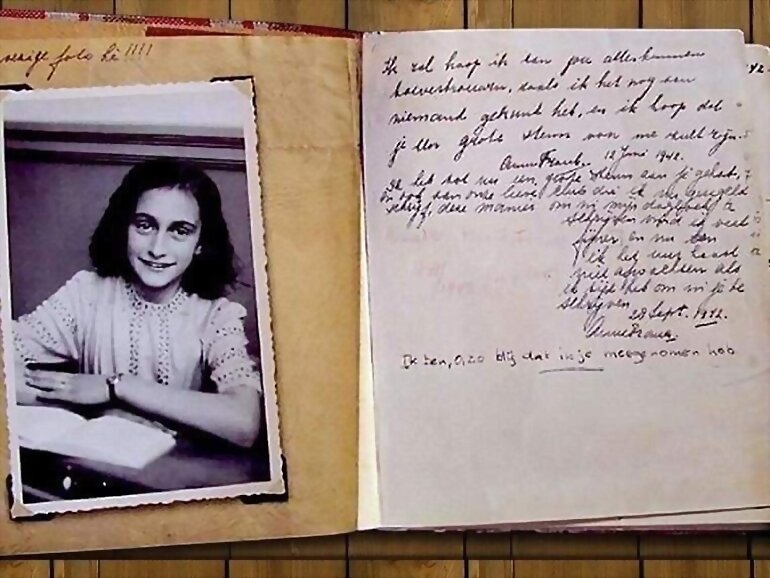 foto hè!!!!
Ik zal hoop ik aan jou alles kunnen
toevertrouwen, zoals ik het nog aan
niemand gekund heb, en ik hoop dat
je een grote steun voor me zult zijn.
Anne Frank. 12 Juni 1942.
Ik heb tot nu een grote steun aan je gehad,
en ook aan onze lieve club die ik nu geregeld
schrijf, deze manier om in mijn dagboek te
schrijven vind ik veel
fijner en nu kan
ik het uur haast
niet afwachten als
ik tijd heb om in je te
schrijven
28 Sept. 1942.
Anne Frank.
Ik ben, O, zo blij dat ik je meegenomen heb
42.